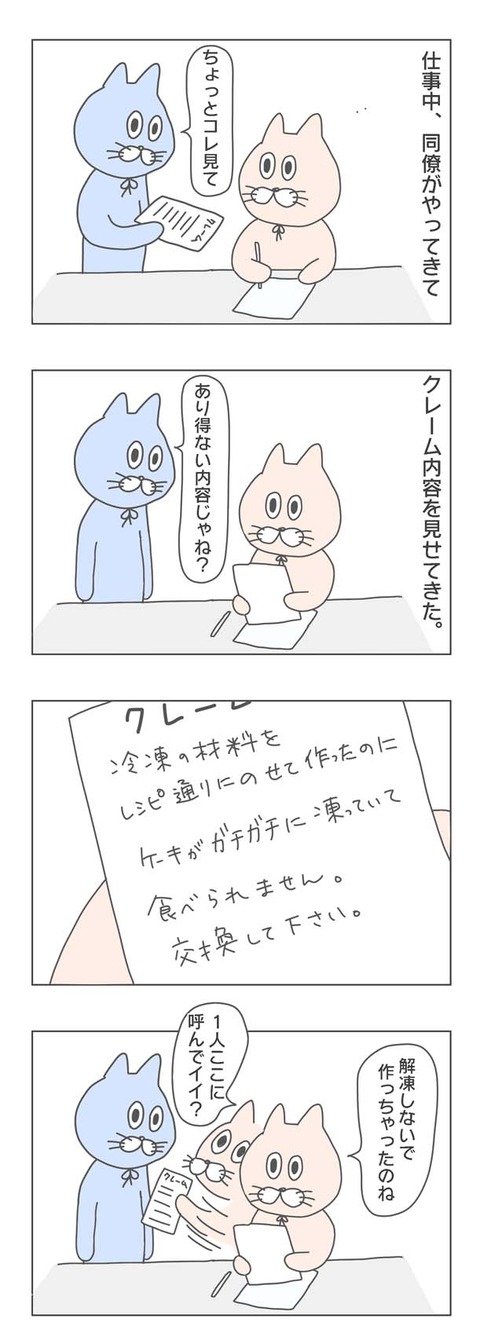 仕事中、同僚がやってきて
ちょっとコレ見て
クレーム
クレーム内容を見せてきた。
あり得ない内容じゃね？
クレーム
冷凍の材料を
レシピ通りにのせて作ったのに
ケーキがガチガチに凍っていて
食べられません。
交換して下さい。
解凍しないで
作っちゃったのね
1人ここに
呼んでイイ？
クレーム